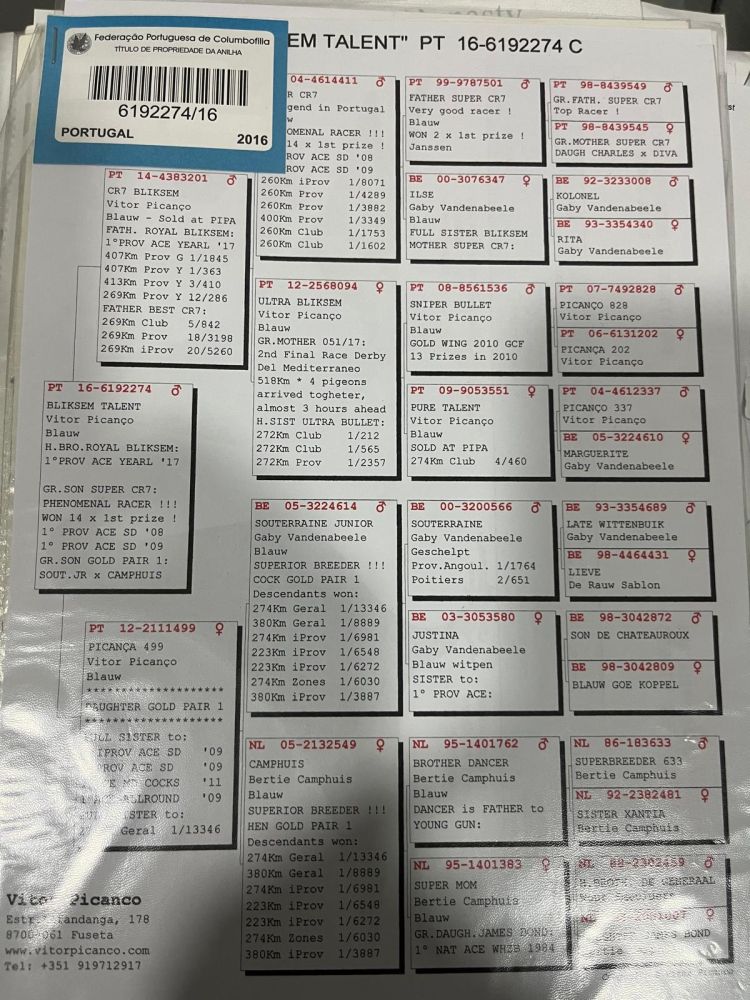 Federação Portuguesa de Columbofilia
TÍTULO DE PROPRIEDADE DA ANILHA
6192274/16
PORTUGAL
2016
EM TALENT" PT 16-6192274 C
PT 16-6192274 ♂
BLIKSEM TALENT
Vitor Picanço
Blauw
H.BRO.ROYAL BLIKSEM:
1°PROV ACE YEARL '17
GR.SON SUPER CR7:
PHENOMENAL RACER !!!
WON 14 x 1st prize !
1° PROV ACE SD '08
1° PROV ACE SD '09
GR.SON GOLD PAIR 1:
SOUT.JR x CAMPHUIS
PT 14-4383201 ♂
CR7 BLIKSEM
Vitor Picanço
Blauw - Sold at PIPA
FATH. ROYAL BLIKSEM:
1°PROV ACE YEARL '17
407Km Prov G 1/1845
407Km Prov Y 1/363
413Km Prov Y 3/410
269Km Prov Y 12/286
FATHER BEST CR7:
269Km Club 5/842
269Km Prov 18/3198
269Km iProv 20/5260
PT 12-2111499 ♀
PICANÇA 499
Vitor Picanço
Blauw
********************
DAUGHTER GOLD PAIR 1
********************
SISTER to:
IPROV ACE SD '09
PROV ACE SD '09
COCKS '11
ALLROUND '09
SISTER to:
Geral 1/13346
04-4614411 ♂
R CR7
gend in Portugal
w
OMENAL RACER !!!
14 x 1st prize !
ROV ACE SD '08
ROV ACE SD '09
260Km iProv 1/8071
260Km Prov 1/4289
260Km Prov 1/3882
400Km Prov 1/3349
260Km Club 1/1753
260Km Club 1/1602
PT 12-2568094 ♀
ULTRA BLIKSEM
Vitor Picanço
Blauw
GR.MOTHER 051/17:
2nd Final Race Derby
Del Mediterraneo
518Km * 4 pigeons
arrived togheter,
almost 3 hours ahead
H.SIST ULTRA BULLET:
272Km Club 1/212
272Km Club 1/565
272Km Prov 1/2357
BE 05-3224614 ♂
SOUTERRAINE JUNIOR
Gaby Vandenabeele
Blauw
SUPERIOR BREEDER !!!
COCK GOLD PAIR 1
Descendants won:
274Km Geral 1/13346
380Km Geral 1/8889
274Km iProv 1/6981
223Km iProv 1/6548
223Km iProv 1/6272
274Km Zones 1/6030
380Km iProv 1/3887
NL 05-2132549 ♀
CAMPHUIS
Bertie Camphuis
Blauw
SUPERIOR BREEDER !!!
HEN GOLD PAIR 1
Descendants won:
274Km Geral 1/13346
380Km Geral 1/8889
274Km iProv 1/6981
223Km iProv 1/6548
223Km iProv 1/6272
274Km Zones 1/6030
380Km iProv 1/3887
PT 99-9787501 ♂
FATHER SUPER CR7
Very good racer !
Blauw
WON 2 x 1st prize !
Janssen
BE 00-3076347 ♀
ILSE
Gaby Vandenabeele
Blauw
FULL SISTER BLIKSEM
MOTHER SUPER CR7:
PT 08-8561536 ♂
SNIPER BULLET
Vitor Picanço
Blauw
GOLD WING 2010 GCF
13 Prizes in 2010
PT 09-9053551 ♀
PURE TALENT
Vitor Picanço
Blauw
SOLD AT PIPA
274Km Club 4/460
BE 00-3200566 ♂
SOUTERRAINE
Gaby Vandenabeele
Geschelpt
Prov.Angoul. 1/1764
Poitiers 2/651
BE 03-3053580 ♀
JUSTINA
Gaby Vandenabeele
Blauw witpen
SISTER to:
1° PROV ACE:
NL 95-1401762 ♂
BROTHER DANCER
Bertie Camphuis
Blauw
DANCER is FATHER to
YOUNG GUN:
NL 95-1401383 ♀
SUPER MOM
Bertie Camphuis
Blauw
GR.DAUGH.JAMES BOND:
1° NAT ACE WHZB 1984
PT 98-8439549 ♂
GR.FATH. SUPER CR7
Top Racer !
PT 98-8439545 ♀
GR.MOTHER SUPER CR7
DAUGH CHARLES x DIVA
BE 92-3233008 ♂
KOLONEL
Gaby Vandenabeele
BE 93-3354340 ♀
RITA
Gaby Vandenabeele
PT 07-7492828 ♂
PICANÇO 828
Vitor Picanço
PT 06-6131202 ♀
PICANÇA 202
Vitor Picanço
PT 04-4612337 ♂
PICANÇO 337
Vitor Picanço
BE 05-3224610 ♀
MARGUERITE
Gaby Vandenabeele
BE 93-3354689 ♂
LATE WITTENBUIK
Gaby Vandenabeele
BE 98-4464431 ♀
LIEVE
De Rauw Sablon
BE 98-3042872 ♂
SON DE CHATEAUROUX
BE 98-3042809 ♀
BLAUW GOE KOPPEL
NL 86-183633 ♂
SUPERBREEDER 633
Bertie Camphuis
NL 92-2382481 ♀
SISTER XANTIA
Bertie Camphuis
NL 88-2302459 ♂
DE GENERAAL
NL ♀
JAMES BOND
Vitor Picanco
Estr. Fandanga, 178
8700-061 Fuseta
www.vitorpicanco.com
Tel: +351 919712917